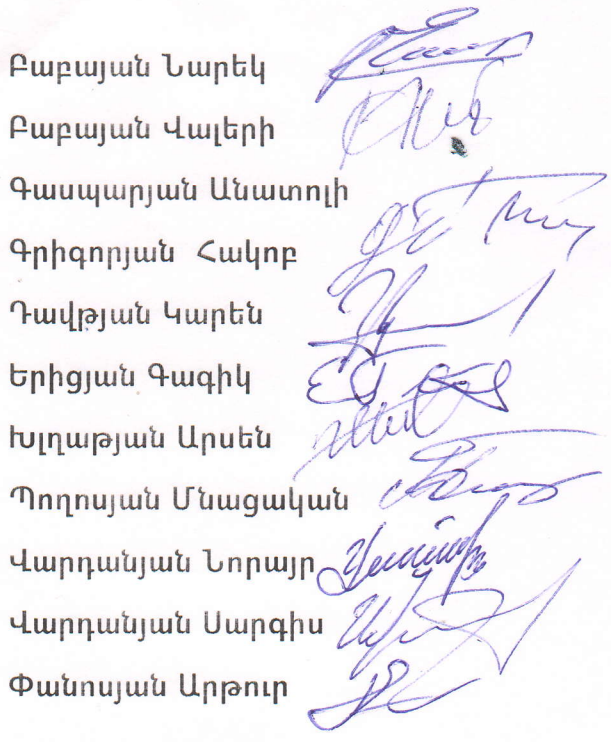 Բաբայան Նարեկ
Բաբայան Վալերի
Գասպարյան Անատոլի
Գրիգորյան Հակոբ
Դավթյան Կարեն
Երիցյան Գագիկ
Խլղաթյան Արսեն
Պողոսյան Մնացական
Վարդանյան Նորայր
Վարդանյան Սարգիս
Փանոսյան Արթուր